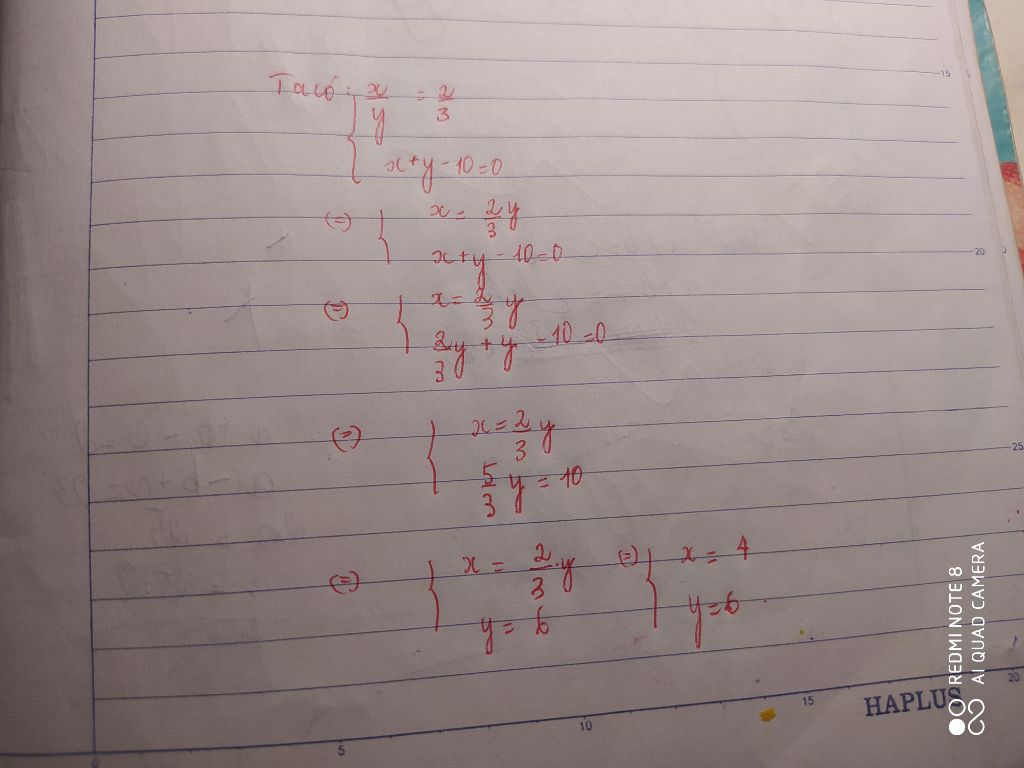 Ta có: { x/y = 2/3
x+y-10=0
(=) { x = 2/3 y
x+y-10=0
(=) { x = 2/3 y
2/3 y + y - 10 = 0
(=) { x = 2/3 y
5/3 y = 10
(=) { x = 2/3 . y (=) { x = 4
y = 6 y = 6
15
20
25
0 5 10 15 20
HAPLUS
REDMI NOTE 8
AI QUAD CAMERA